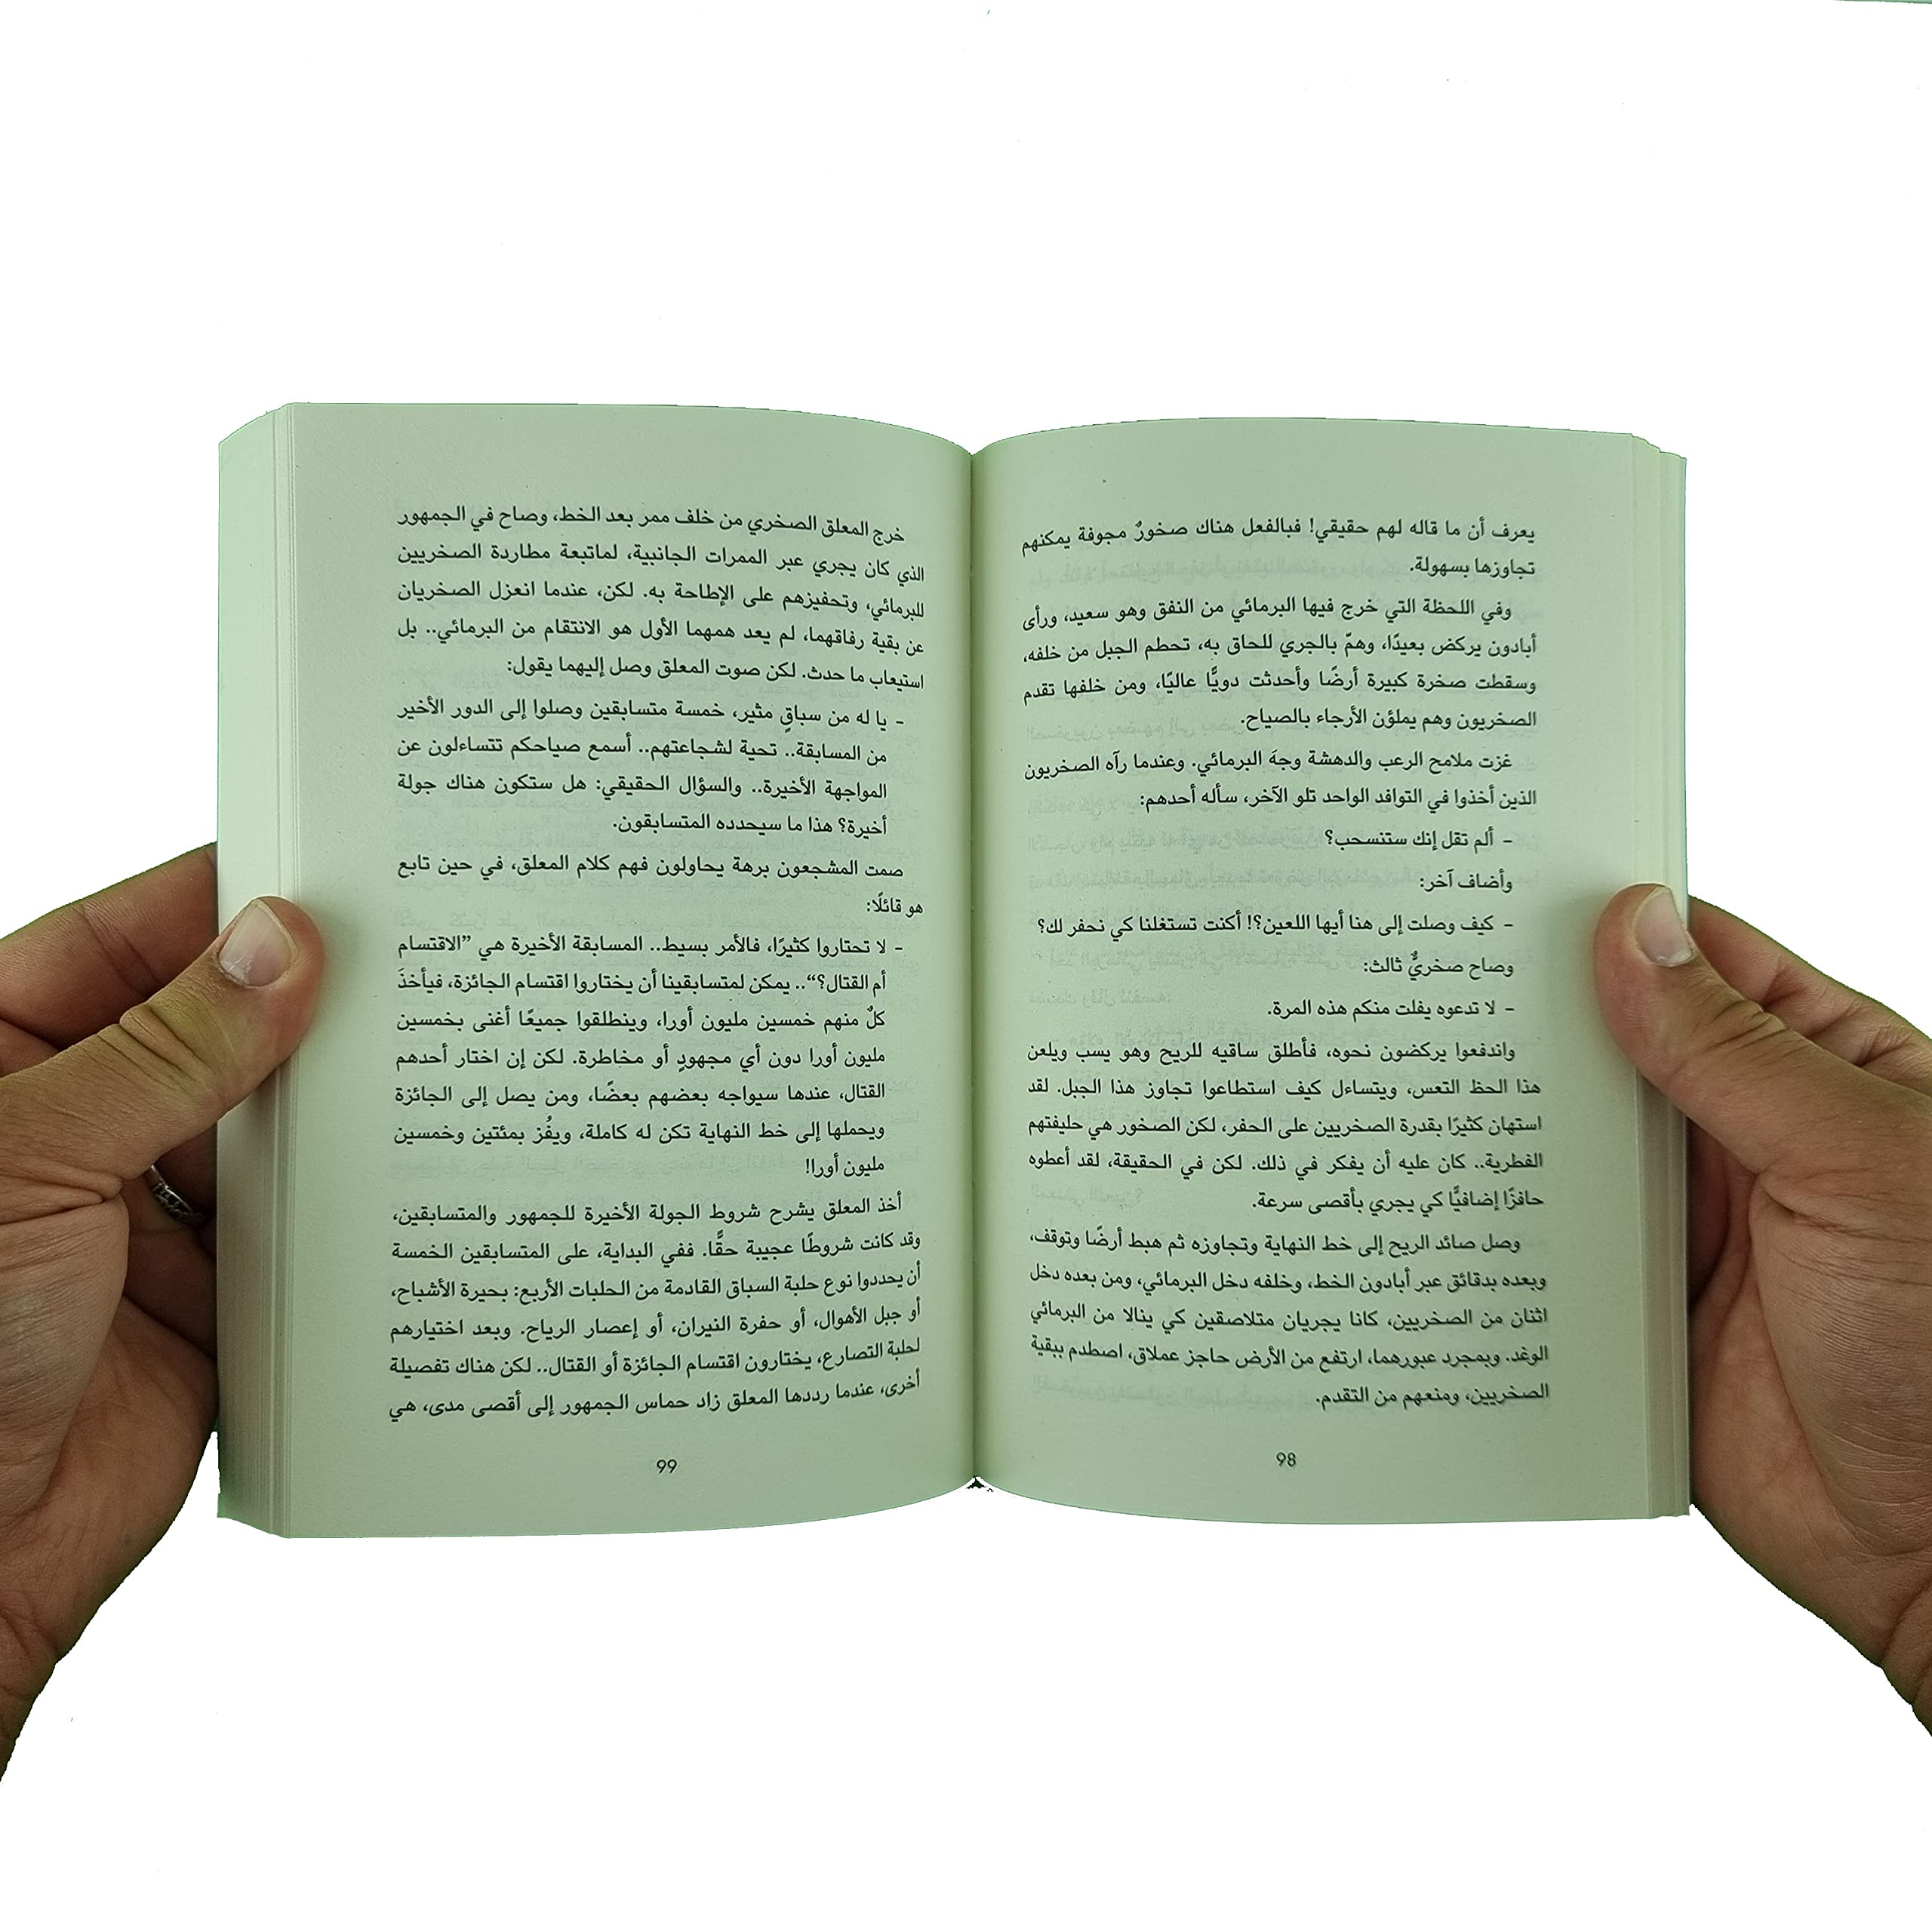 يعرف أن ما قاله لهم حقيقي! فبالفعل هناك صخورٌ مجوفة يمكنهم
تجاوزها بسهولة.
وفي اللحظة التي خرج فيها البرمائي من النفق وهو سعيد، ورأى
أبادون يركض بعيدًا، وهمّ بالجري للحاق به، تحطم الجبل من خلفه،
وسقطت صخرة كبيرة أرضًا وأحدثت دويًّا عاليًا، ومن خلفها تقدم
الصخريون وهم يملؤن الأرجاء بالصياح.
غزت ملامح الرعب والدهشة وجهَ البرمائي. وعندما رآه الصخريون
الذين أخذوا في التوافد الواحد تلو الآخر، سأله أحدهم:
– ألم تقل إنك ستنسحب؟
وأضاف آخر:
– كيف وصلت إلى هنا أيها اللعين؟! أكنت تستغلنا كي نحفر لك؟
وصاح صخريٌّ ثالث:
– لا تدعوه يفلت منكم هذه المرة.
واندفعوا يركضون نحوه، فأطلق ساقيه للريح وهو يسب ويلعن
هذا الحظ التعس، ويتساءل كيف استطاعوا تجاوز هذا الجبل. لقد
استهان كثيرًا بقدرة الصخريين على الحفر، لكن الصخور هي حليفتهم
الفطرية.. كان عليه أن يفكر في ذلك. لكن في الحقيقة، لقد أعطوه
حافزًا إضافيًّا كي يجري بأقصى سرعة.
وصل صائد الريح إلى خط النهاية وتجاوزه ثم هبط أرضًا وتوقف،
وبعده بدقائق عبر أبادون الخط، وخلفه دخل البرمائي، ومن بعده دخل
اثنان من الصخريين، كانا يجريان متلاصقين كي ينالا من البرمائي
الوغد. وبمجرد عبورهما، ارتفع من الأرض حاجز عملاق، اصطدم ببقية
الصخريين، ومنعهم من التقدم.
98
خرج المعلق الصخري من خلف ممر بعد الخط، وصاح في الجمهور
الذي كان يجري عبر الممرات الجانبية، لماتبعة مطاردة الصخريين
للبرمائي، وتحفيزهم على الإطاحة به. لكن، عندما انعزل الصخريان
عن بقية رفاقهما، لم يعد همهما الأول هو الانتقام من البرمائي.. بل
استيعاب ما حدث. لكن صوت المعلق وصل إليهما يقول:
– يا له من سباقٍ مثير، خمسة متسابقين وصلوا إلى الدور الأخير
من المسابقة.. تحية لشجاعتهم.. أسمع صياحكم تتساءلون عن
المواجهة الأخيرة.. والسؤال الحقيقي: هل ستكون هناك جولة
أخيرة؟ هذا ما سيحدده المتسابقون.
صمت المشجعون برهة يحاولون فهم كلام المعلق، في حين تابع
هو قائلًا:
– لا تحتاروا كثيرًا، فالأمر بسيط.. المسابقة الأخيرة هي ”الاقتسام
أم القتال؟“.. يمكن لمتسابقينا أن يختاروا اقتسام الجائزة، فيأخذَ
كلٌ منهم خمسين مليون أورا، وينطلقوا جميعًا أغنى بخمسين
مليون أورا دون أي مجهودٍ أو مخاطرة. لكن إن اختار أحدهم
القتال، عندها سيواجه بعضهم بعضًا، ومن يصل إلى الجائزة
ويحملها إلى خط النهاية تكن له كاملة، ويفُز بمئتين وخمسين
مليون أورا!
أخذ المعلق يشرح شروط الجولة الأخيرة للجمهور والمتسابقين،
وقد كانت شروطًا عجيبة حقًّا. ففي البداية، على المتسابقين الخمسة
أن يحددوا نوع حلبة السباق القادمة من الحلبات الأربع: بحيرة الأشباح،
أو جبل الأهوال، أو حفرة النيران، أو إعصار الرياح. وبعد اختيارهم
لحلبة التصارع، يختارون اقتسام الجائزة أو القتال.. لكن هناك تفصيلة
أخرى، عندما رددها المعلق زاد حماس الجمهور إلى أقصى مدى، هي
99